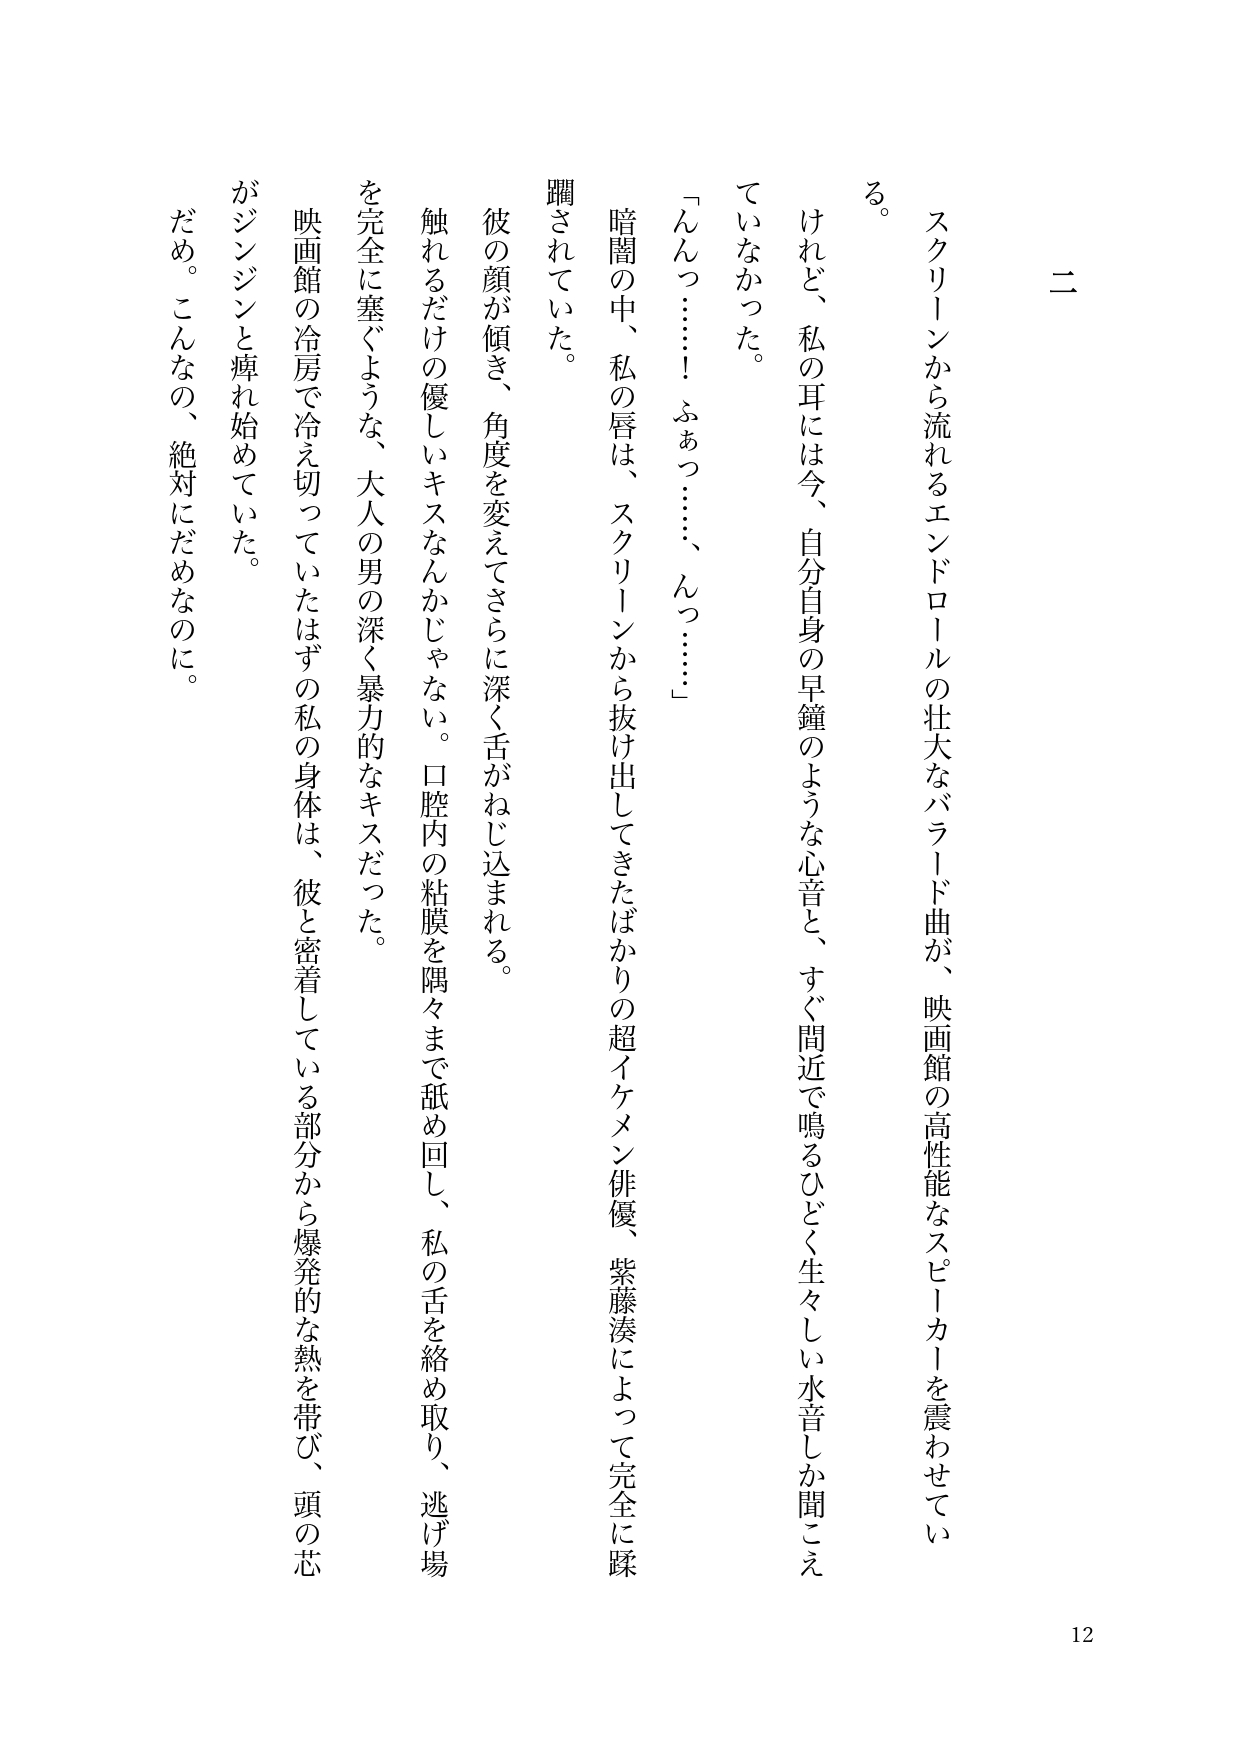 二
スクリーンから流れるエンドロールの壮大なバラード曲が、映画館の高性能なスピーカーを震わせてい
る。
けれど、私の耳には今、自分自身の早鐘のような心音と、すぐ間近で鳴るひどく生々しい水音しか聞こえ
ていなかった。
「んんっ……！ ふぁっ……、んっ……」
暗闇の中、私の唇は、スクリーンから抜け出してきたばかりの超イケメン俳優、紫藤湊によって完全に蹂
躙されていた。
彼の顔が傾き、角度を変えてさらに深く舌がねじ込まれる。
触れるだけの優しいキスなんかじゃない。口腔内の粘膜を隅々まで舐め回し、私の舌を絡め取り、逃げ場
を完全に塞ぐような、大人の男の深く暴力的なキスだった。
映画館の冷房で冷え切っていたはずの私の身体は、彼と密着している部分から爆発的な熱を帯び、頭の芯
がジンジンと痺れ始めていた。
だめ。こんなの、絶対にだめなのに。
12